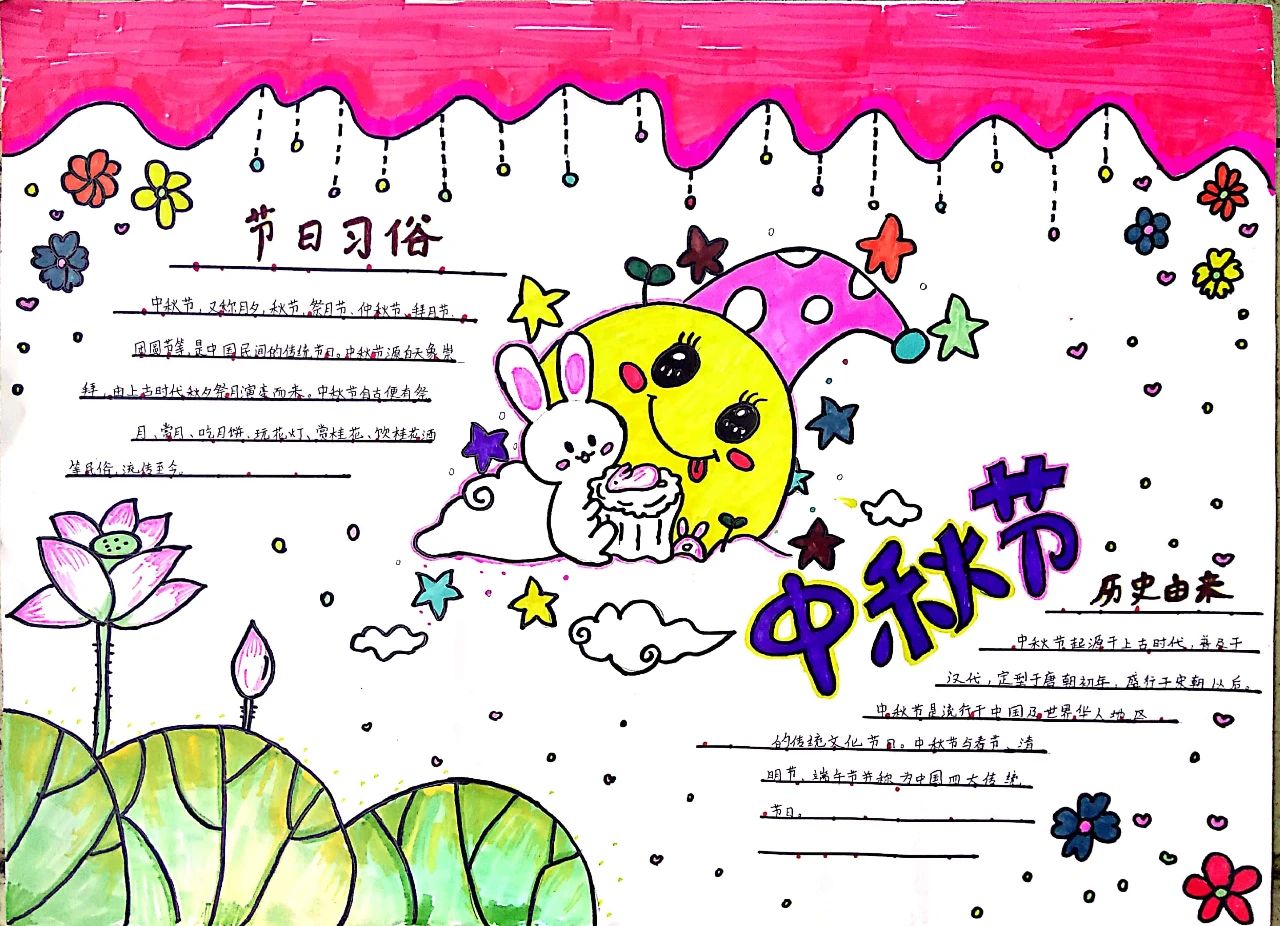 节日习俗
中秋节，又称月夕，秋节、祭月节、仲秋节、拜月节、
团圆节等，是中国民间的传统节日。中秋节源自天象崇
拜，由上古时代秋夕祭月演变而来。中秋节自古便有祭
月、赏月、吃月饼、玩花灯、赏桂花、饮桂花酒
等民俗，流传至今。
中秋节
历史由来
中秋节起源于上古时代，普及于
汉代，定型于唐朝初年，盛行于宋朝以后。
中秋节是流行于中国及世界华人地区
的传统文化节日。中秋节与春节、清
明节、端午节并称为中国四大传统
节日。